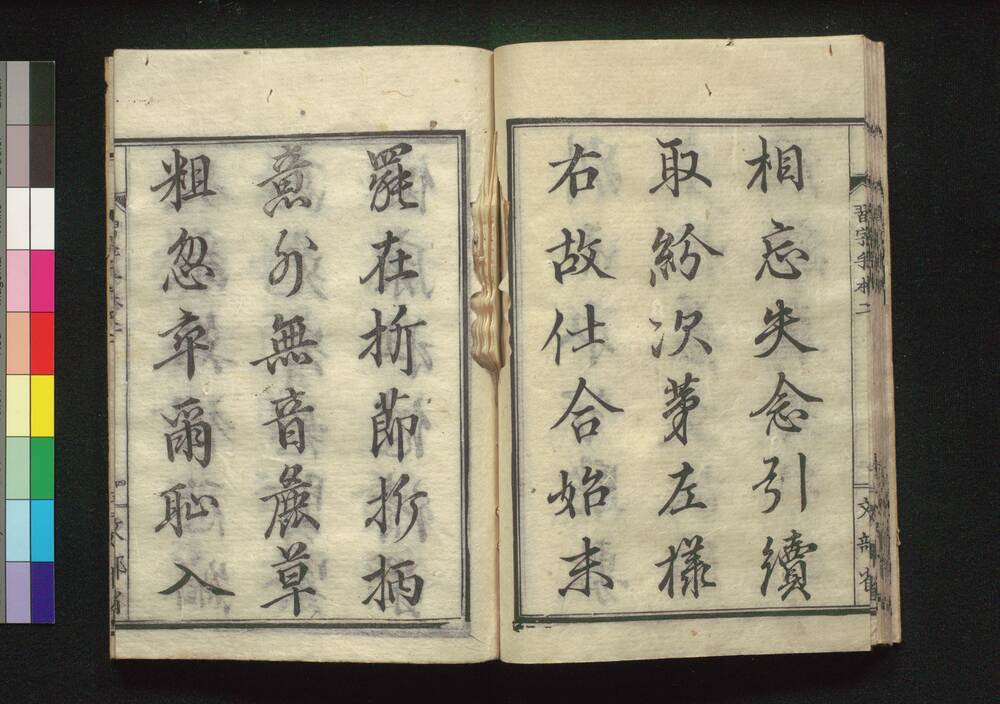 習字手本二
文部省
相忘失念引續
取紛次茅左樣
右故仕合始末
罷在折節折柄
意外無音麁草
粗忽卒爾恥入